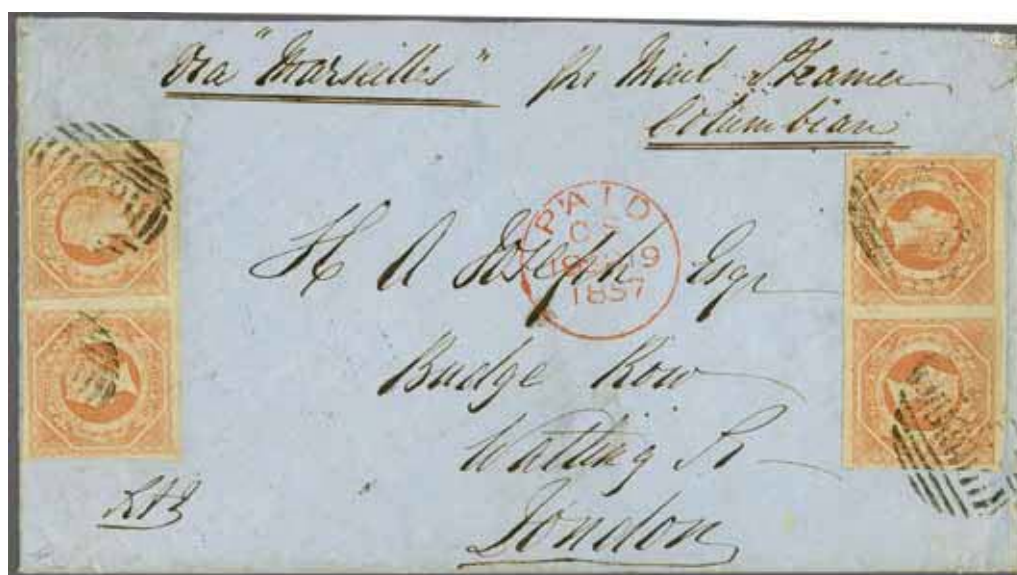 via "Marseilles" per Mail Steamer
Columbian
PAID
18SP19
1857
H A Joseph Esqr
Budge Row
Watling St
London